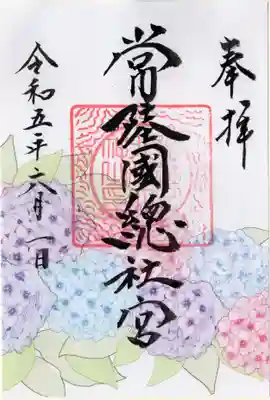 奉拝
常陸國總社宮
令和五年六月一日